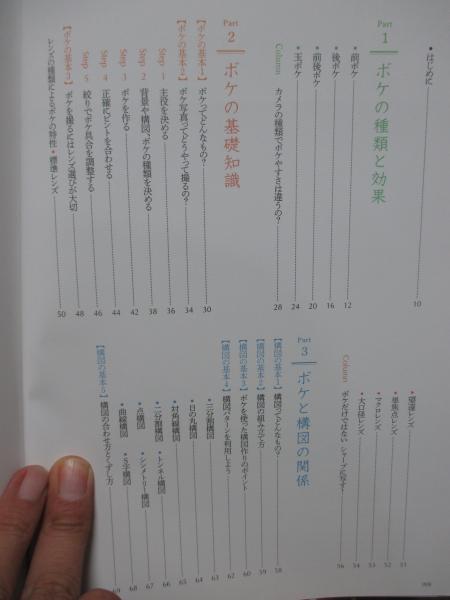 ●はじめに 10
Part 1 ボケの種類と効果
●前ボケ 12
●後ボケ 16
●前後ボケ 20
●玉ボケ 24
Column カメラの種類でボケやすさは違うの? 28
Part 2 ボケの基礎知識
【ボケの基本1】ボケってどんなもの? 30
【ボケの基本2】ボケ写真ってどうやって撮るの? 34
Step 1 主役を決める 36
Step 2 背景や構図、ボケの種類を決める 38
Step 3 ボケを作る 42
Step 4 正確にピントを合わせる 44
Step 5 絞りでボケ具合を調整する 46
【ボケの基本3】ボケを撮るにはレンズ選びが大切 48
レンズの種類によるボケの特性 ●標準レンズ 50
●望遠レンズ 51
●単焦点レンズ 52
●マクロレンズ 53
●大口径レンズ 54
Column ボケだけではない シャープに写す! 56
Part 3 ボケと構図の関係
【構図の基本1】構図ってどんなもの? 58
【構図の基本2】構図の組み立て方 59
【構図の基本3】ボケを使った構図作りのポイント 60
【構図の基本4】構図パターンを利用しよう 62
●三分割構図 63
●日の丸構図 64
●対角線構図 65
●二分割構図 ●トンネル構図 66
●点構図 ●シンメトリー構図 67
●曲線構図 ●S字構図 68
【構図の基本5】構図の合わせ方とくずし方 69